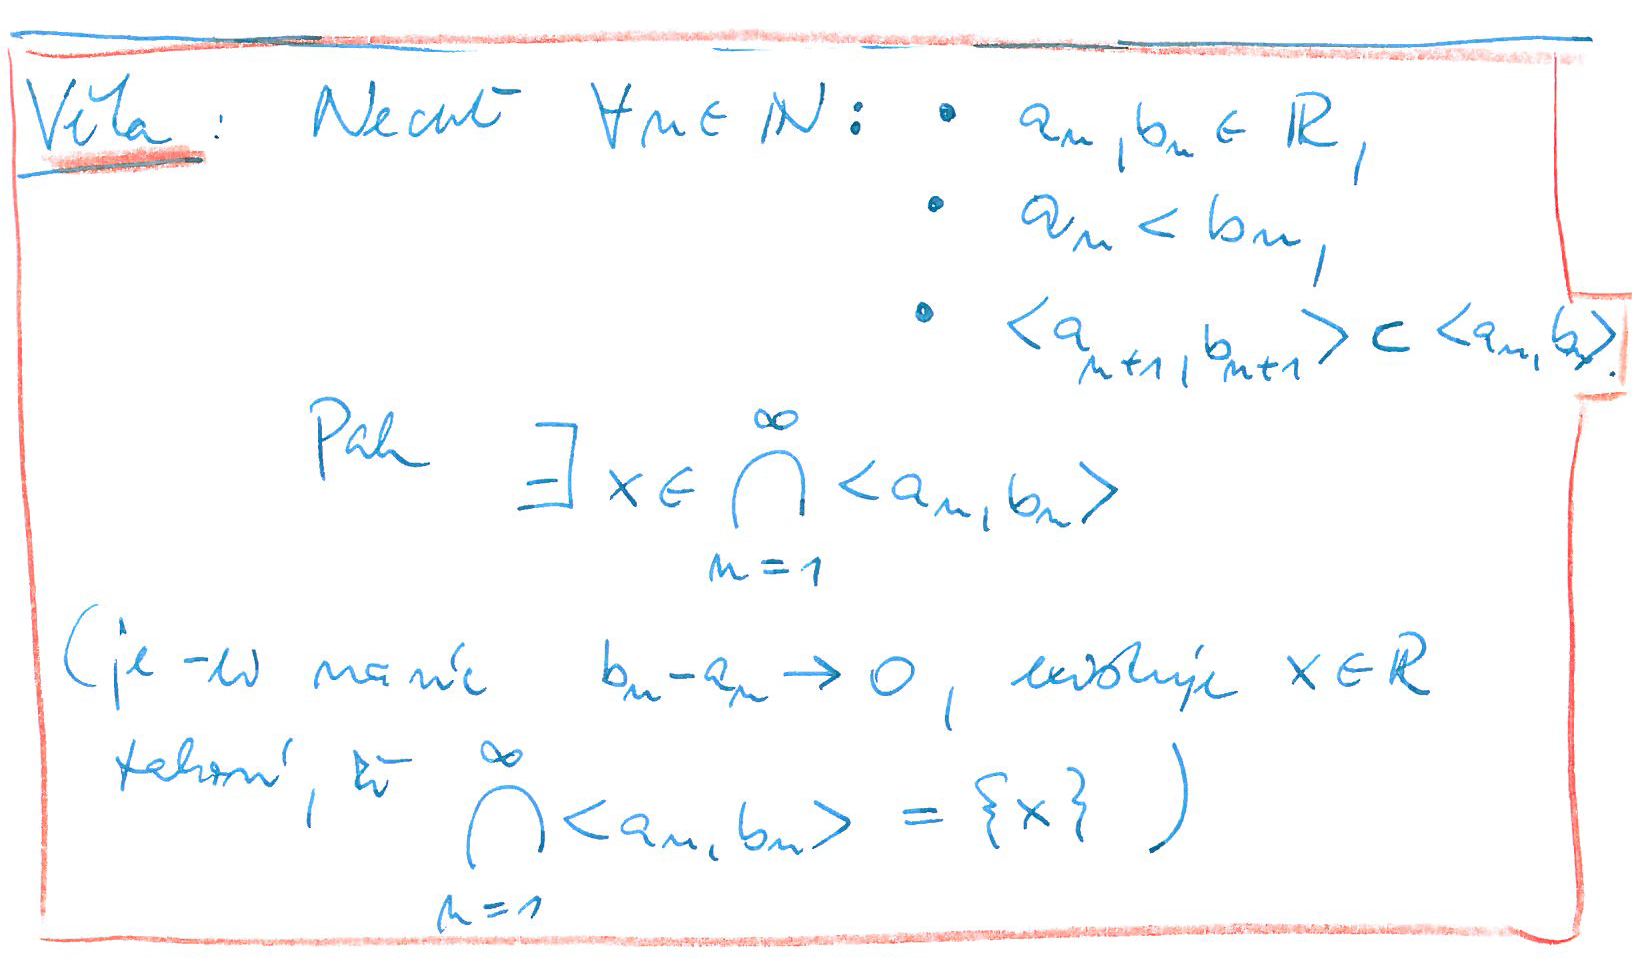 Věta : Nechť ∀n∈ℕ: • aₙ, bₙ ∈ ℝ,
• aₙ < bₙ,
• <aₙ₊₁, bₙ₊₁> ⊂ <aₙ, bₙ>.
Pak ∃ x ∈ ⋂ₙ₌₁^∞ <aₙ, bₙ>
(je-li navíc bₙ - aₙ → 0, existuje x ∈ ℝ
takové, že ⋂ₙ₌₁^∞ <aₙ, bₙ> = {x} )